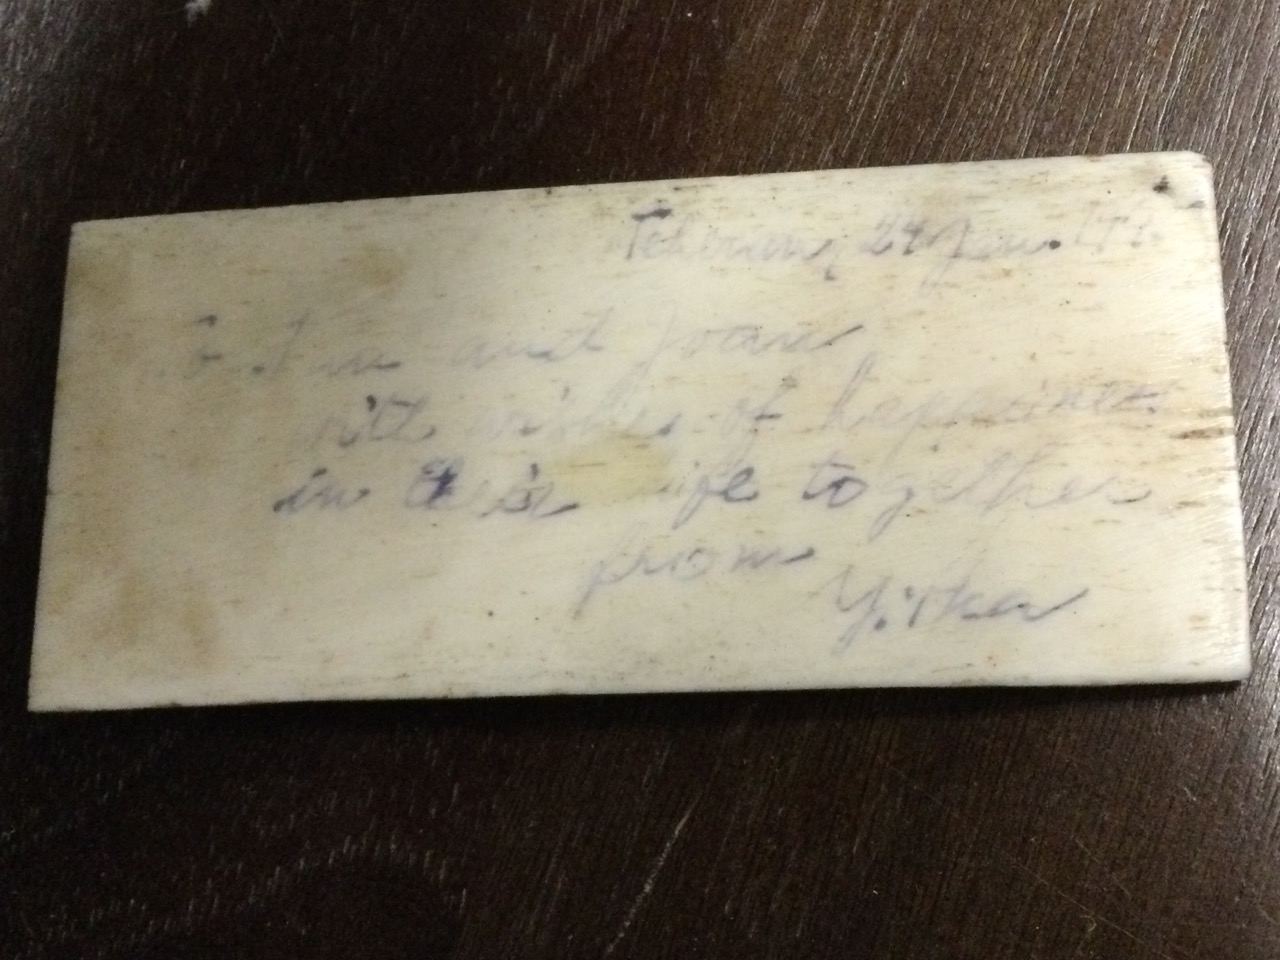 Teheran, 24 Jan.
and Joan
with wishes of happiness
in their life together
from